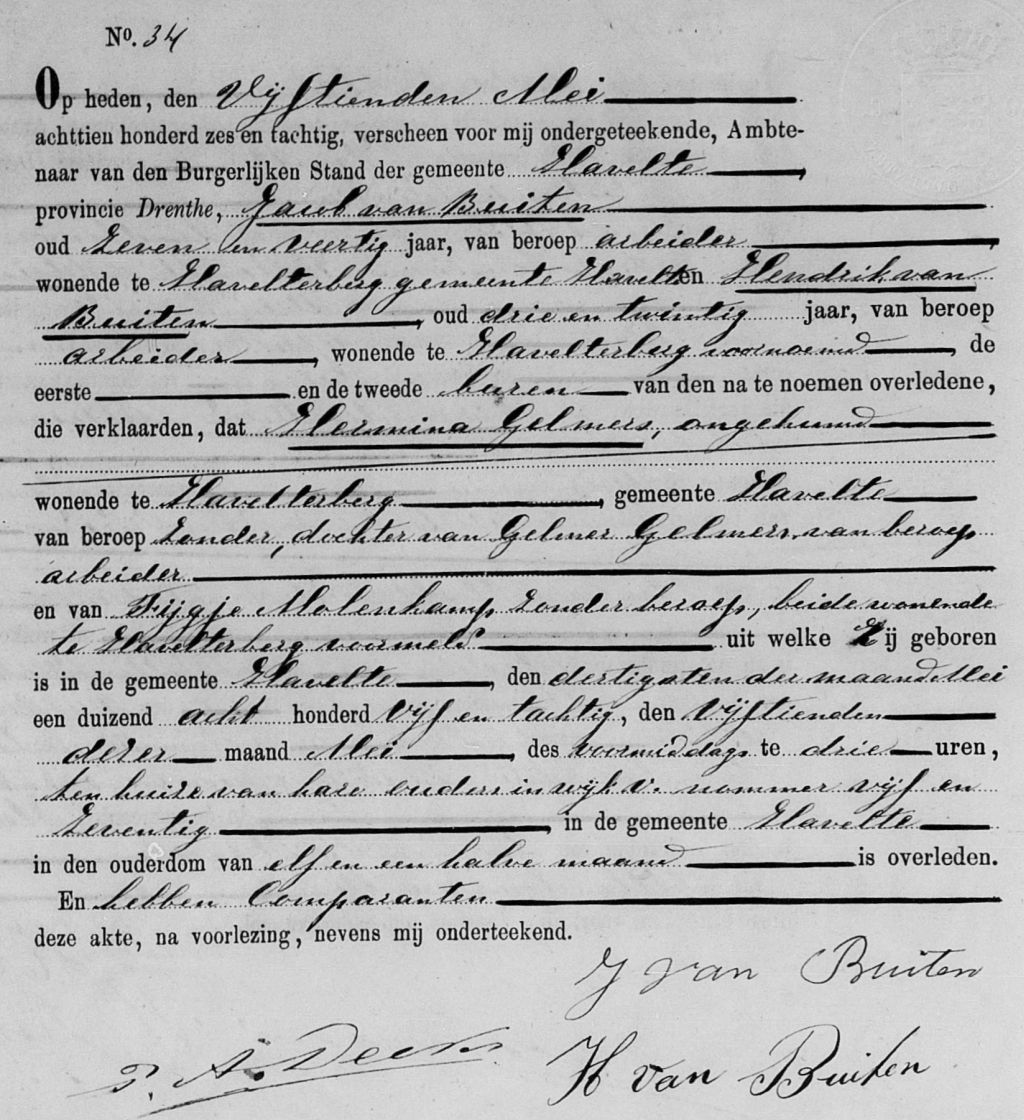 No. 34
Op heden, den Vijftienden Mei
achttien honderd zes en tachtig, verscheen voor mij ondergeteekende, Ambte-
naar van den Burgerlijken Stand der gemeente Havelte,
provincie Drenthe, Jacob van Buiten
oud Zeven en veertig jaar, van beroep arbeider,
wonende te Havelterberg gemeente Havelte en Hendrik van
Buiten, oud drie en twintig jaar, van beroep
arbeider, wonende te Havelterberg voornoemd, de
eerste en de tweede buren van den na te noemen overledene,
die verklaarden, dat Hermina Gelmers, ongehuwd
wonende te Havelterberg, gemeente Havelte
van beroep Zonder, dochter van Gelmer Gelmers, van beroep
arbeider
en van Fijgje Molenkamp, zonder beroep, beide wonende
te Havelterberg voormeld uit welke Zij geboren
is in de gemeente Havelte, den dertigsten der maand Mei
een duizend acht honderd Vijf en tachtig, den Vijftienden
dezer maand Mei, des voormiddags te drie uren,
ten huize van hare ouders in wijk V. nommer vijf en
Zeventig, in de gemeente Havelte
in den ouderdom van elf en een halve maand is overleden.
En hebben Comparanten
deze akte, na voorlezing, nevens mij onderteekend.
J van Buiten
H van Buiten